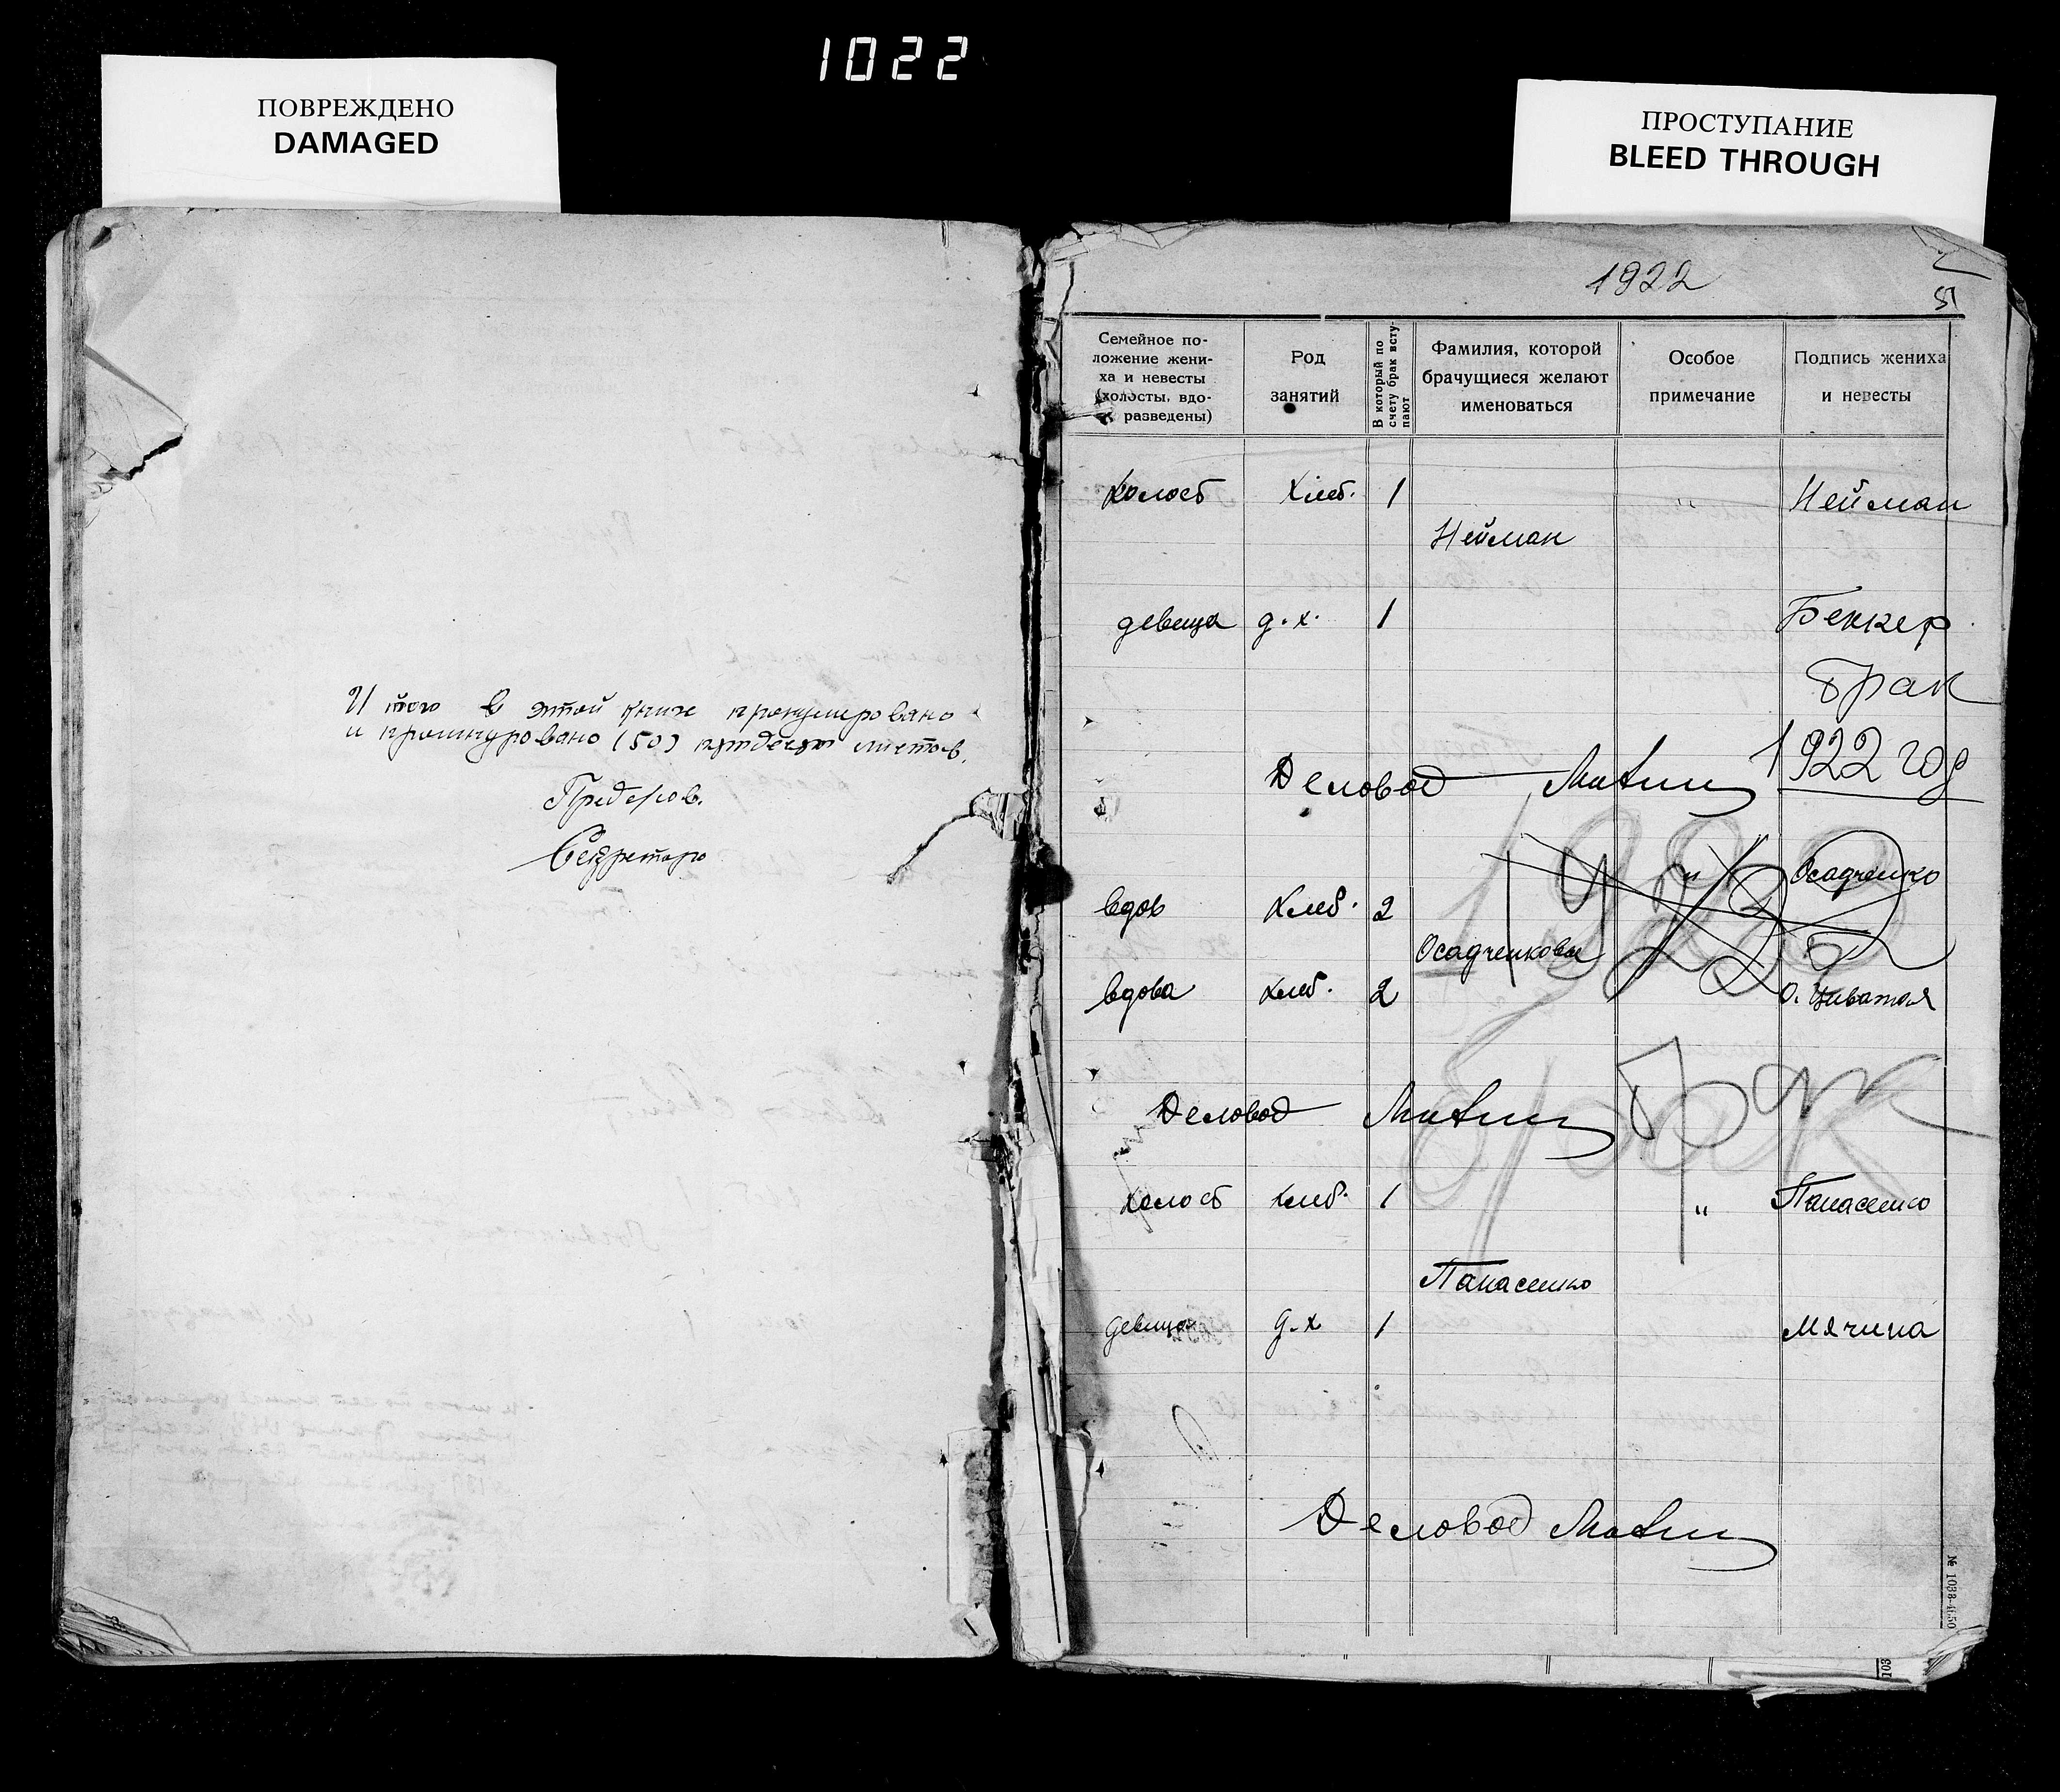 1022
ПОВРЕЖДЕНО
DAMAGED
ПРОСТУПАНИЕ
BLEED THROUGH
Итого в этой книге пронумеровано
и прошнуровано (50) пятдесят листов.
Секретарь
1922
51
Семейное по-
ложение жени-
ха и невесты
(холосты, вдо-
разведены)
Род
занятий
В который по
счету брак всту-
пают
Фамилия, которой
брачущиеся желают
именоваться
Особое
примечание
Подпись жениха
и невесты
холост хлеб. 1 " Нейман
Нейман
девица д. х. 1 Беккер
Брак
1922 год
Деловод
1922
вдов хлеб. 2 " Осадченко
Осадченковы
вдова хлеб. 2
Брак
Деловод
холост хлеб. 1 " Панасенко
Панасенко
девица д. х 1 Мячина
Деловод
№ 1038-4650
103